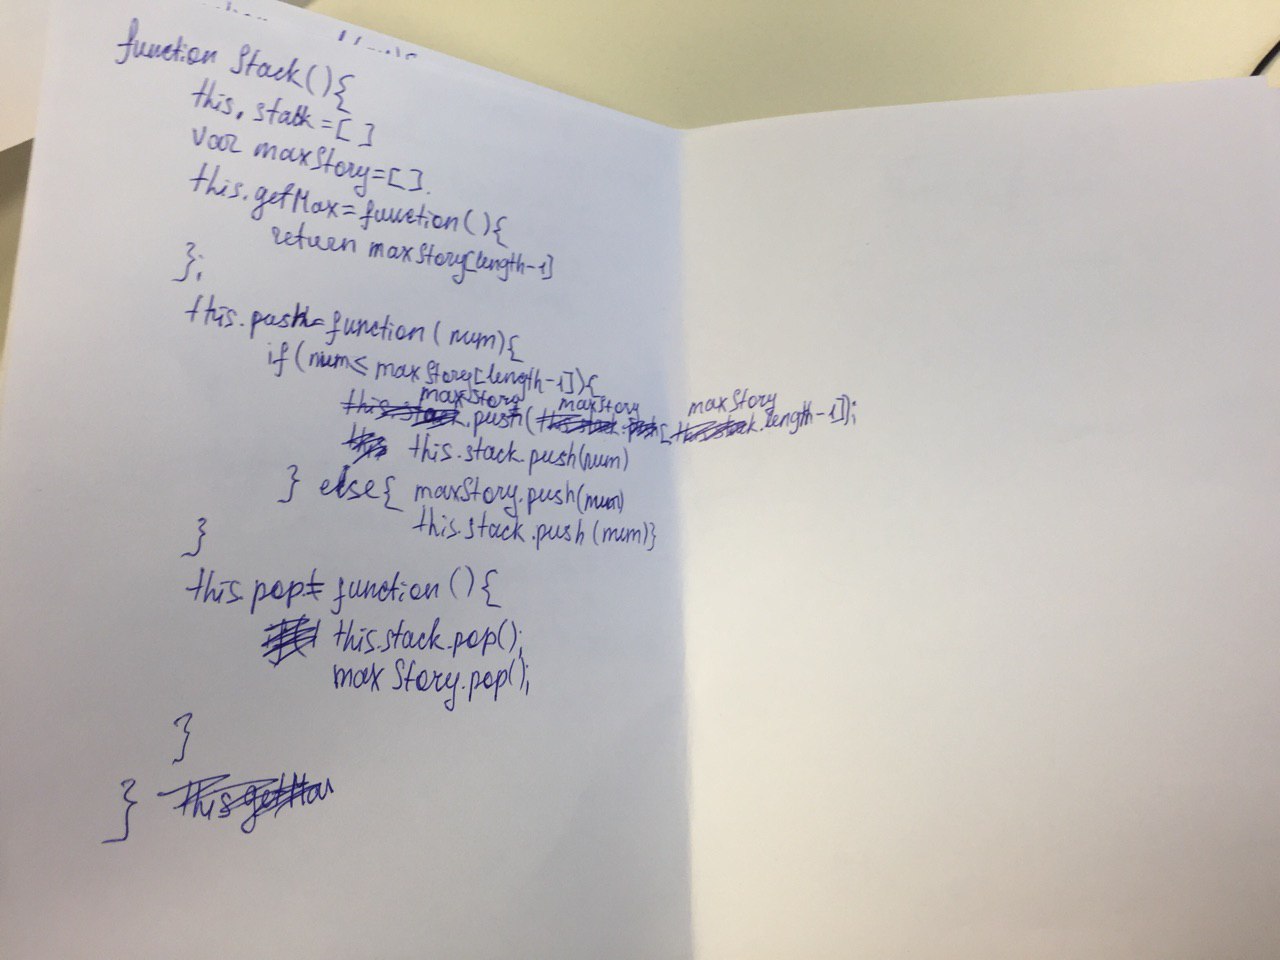 function Stack(){
this.stack=[]
var maxStory=[].
this.getMax=function(){
return maxStory[length-1]
};
this.push=function(num){
if(num≤maxStory[length-1]){
maxStory.push(maxStory[maxStory.length-1]);
this.stack.push(num)
} else{ maxStory.push(num)
this.stack.push(num)}
}
this.pop= function(){
this.stack.pop();
maxStory.pop();
}
}